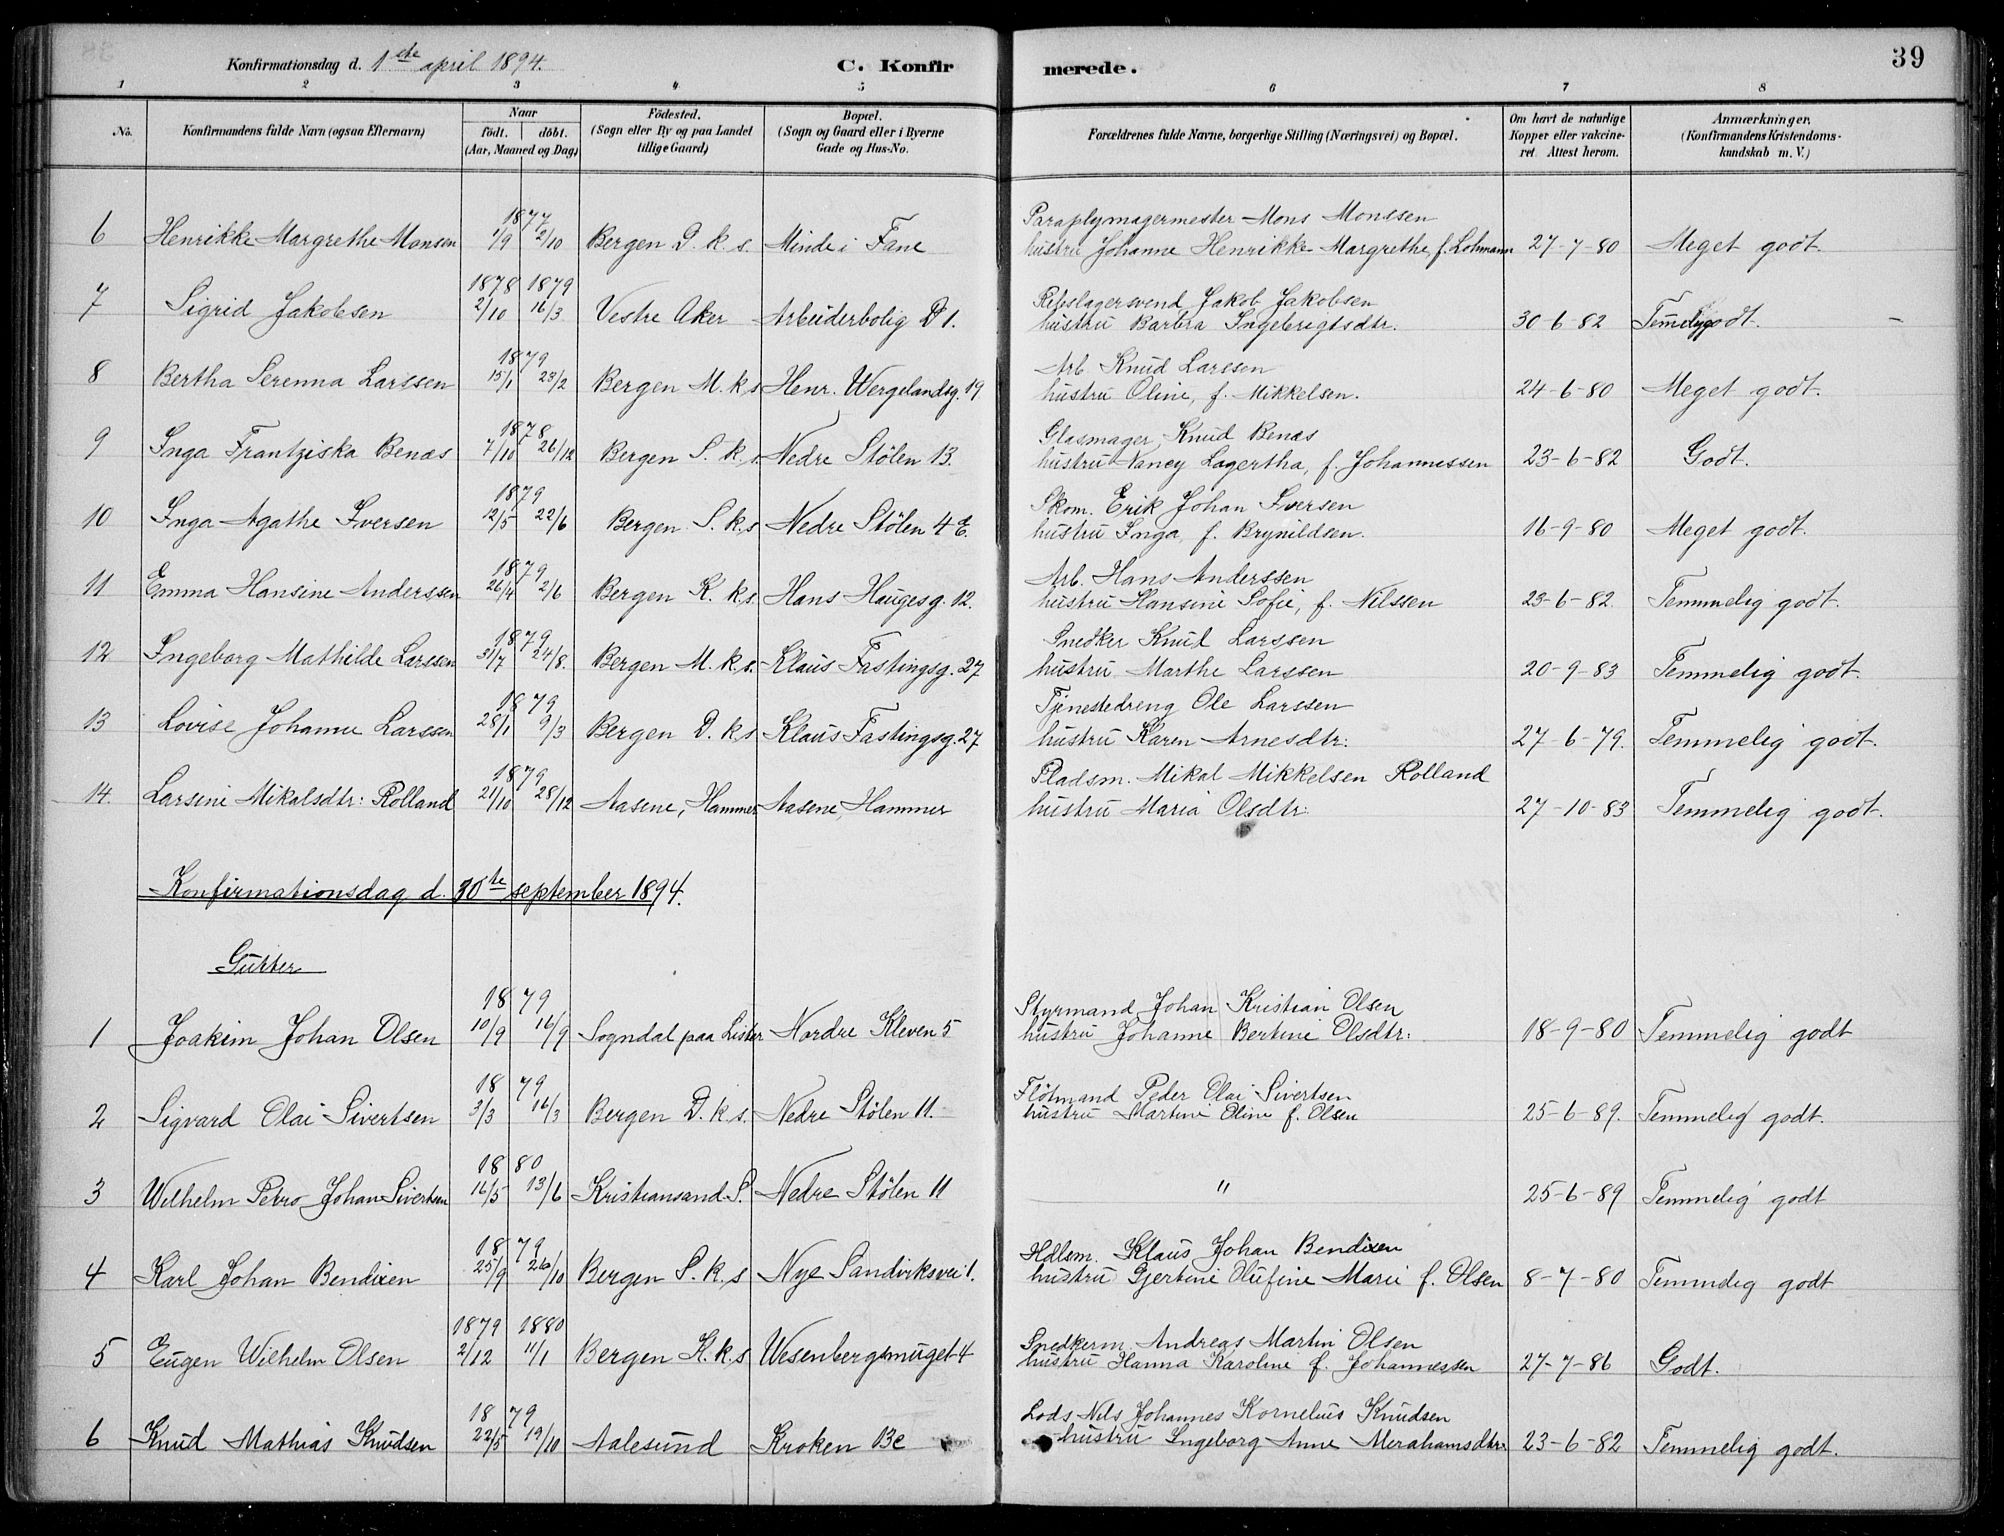 Konfirmationsdag d. 1ste april 1894. C. Konfirmerede. 39
1 2 3 4 5 6 7 8
No. Konfirmandens fulde Navn (ogsaa Efternavn) Naar født. døbt. (Aar, Maaned og Dag) Fødested. (Sogn eller By og paa Landet tillige Gaard) Bopæl. (Sogn og Gaard eller i Byerne Gade og Hus-No. Forældrenes fulde Navne, borgerlige Stilling (Næringsvei) og Bopæl. Om havt de naturlige Kopper eller vakcineret. Attest herom. Anmærkninger, (Konfirmandens Kristendomskundskab m. V.)
1877 Paraplymagermester Mons Monssen
6 Henrikke Margrethe Monsen 1/9 2/10 Bergen D. k. s. Minde i Fane hustru Johanne Henrikke Margrethe, f. Lohmann 27-7-80 Meget godt.
1878 1879 Rebslagersvend Jakob Jakobsen
7 Sigrid Jakobsen 2/10 16/3 Vestre Aker Arbeiderbolig D 1. hustru Barbra Ingebrigtsdtr. 30-6-82 Temelig godt.
1879 Arb. Knud Larssen
8 Bertha Serenna Larssen 15/1 23/2 Bergen M. k. s Henr. Wergelandsg. 19 hustru Oline, f. Mikkelsen. 24-6-80 Meget godt.
1878 Glasmager Knud Benæs
9 Inga Frantziska Benæs 7/10 26/12 Bergen S. k. s. Nedre Stølen 13. hustru Nancy Lagertha, f. Johannessen 23-6-82 Godt.
1879 Skom. Erik Johan Iversen
10 Inga Agathe Iversen 12/5 22/6 Bergen S. k. s Nedre Stølen 4 E. hustru Inga, f. Brynildsen. 16-9-80 Meget godt.
1879 Arb. Hans Anderssen
11 Emma Hansine Anderssen 26/4 2/6 Bergen K. k. s. Hans Haugesg. 12. hustru Hansine Sofie, f. Nilssen 23-6-82. Temmelig godt.
1879 Snedker Knud Larssen
12 Ingeborg Mathilde Larssen 31/7 24/8. Bergen M. k. s. Klaus Fastingsg. 27 hustru Marthe Larssen 20-9-83 Temmelig godt.
1879 Tjenestedreng Ole Larssen
13 Lovise Johanne Larssen 28/1 9/3 Bergen D. k. s Klaus Fastingsg. 27 hustru Karen Arnesdtr: 27-6-79. Temmelig godt.
1879 Pladsm. Mikal Mikkelsen Rolland
14. Larsine Mikalsdtr: Rolland 21/10 28/12 Aasene, Hammer Aasene, Hammer hustru Maria Olsdtr: 27-10-83 Temmelig godt.
Konfirmationsdag d. 30te september 1894.
Gutter
1879 Styrmand Johan Kristian Olsen
1 Joakim Johan Olsen 10/9 16/9 Sogndal paa Lister Nordre Kleven 5 hustru Johanne Bertine Olsdtr: 18-9-80 Temmelig godt
1879 Fløtmand Peder Olai Sivertsen
2 Sigvard Olai Sivertsen 3/3 16/3 Bergen D. k. s. Nedre Stølen 11. hustru Martine Oline f. Olsen 25-6-89. Temmelig godt.
1880
3 Wilhelm Petro Johan Sivertsen 16/5 13/6 Kristiansand S. Nedre Stølen 11 " 25-6-89 Temmelig godt
1879 Hdlsm. Klaus Johan Bendixen
4 Karl Johan Bendixen 25/9 26/10 Bergen S. k. s Nye Sandviksvei 1. hustru Gjertine Marie f. Olsen 8-7-80 Temmelig godt
1879 1880 Snedkerm. Andreas Martin Olsen
5 Eugen Wilhelm Olsen 2/12 11/1 Bergen K. k. s Wesenbergsmuget 4 hustru Hanna Karoline f. Johannessen 27-7-86 Godt.
1879 Lods Nils Johannes Kornelius Knudsen
6 Knud Mathias Knudsen 22/5 19/10 Aalesund Kroken 13c hustru Ingeborg Anne 23-6-82 Temmelig godt.